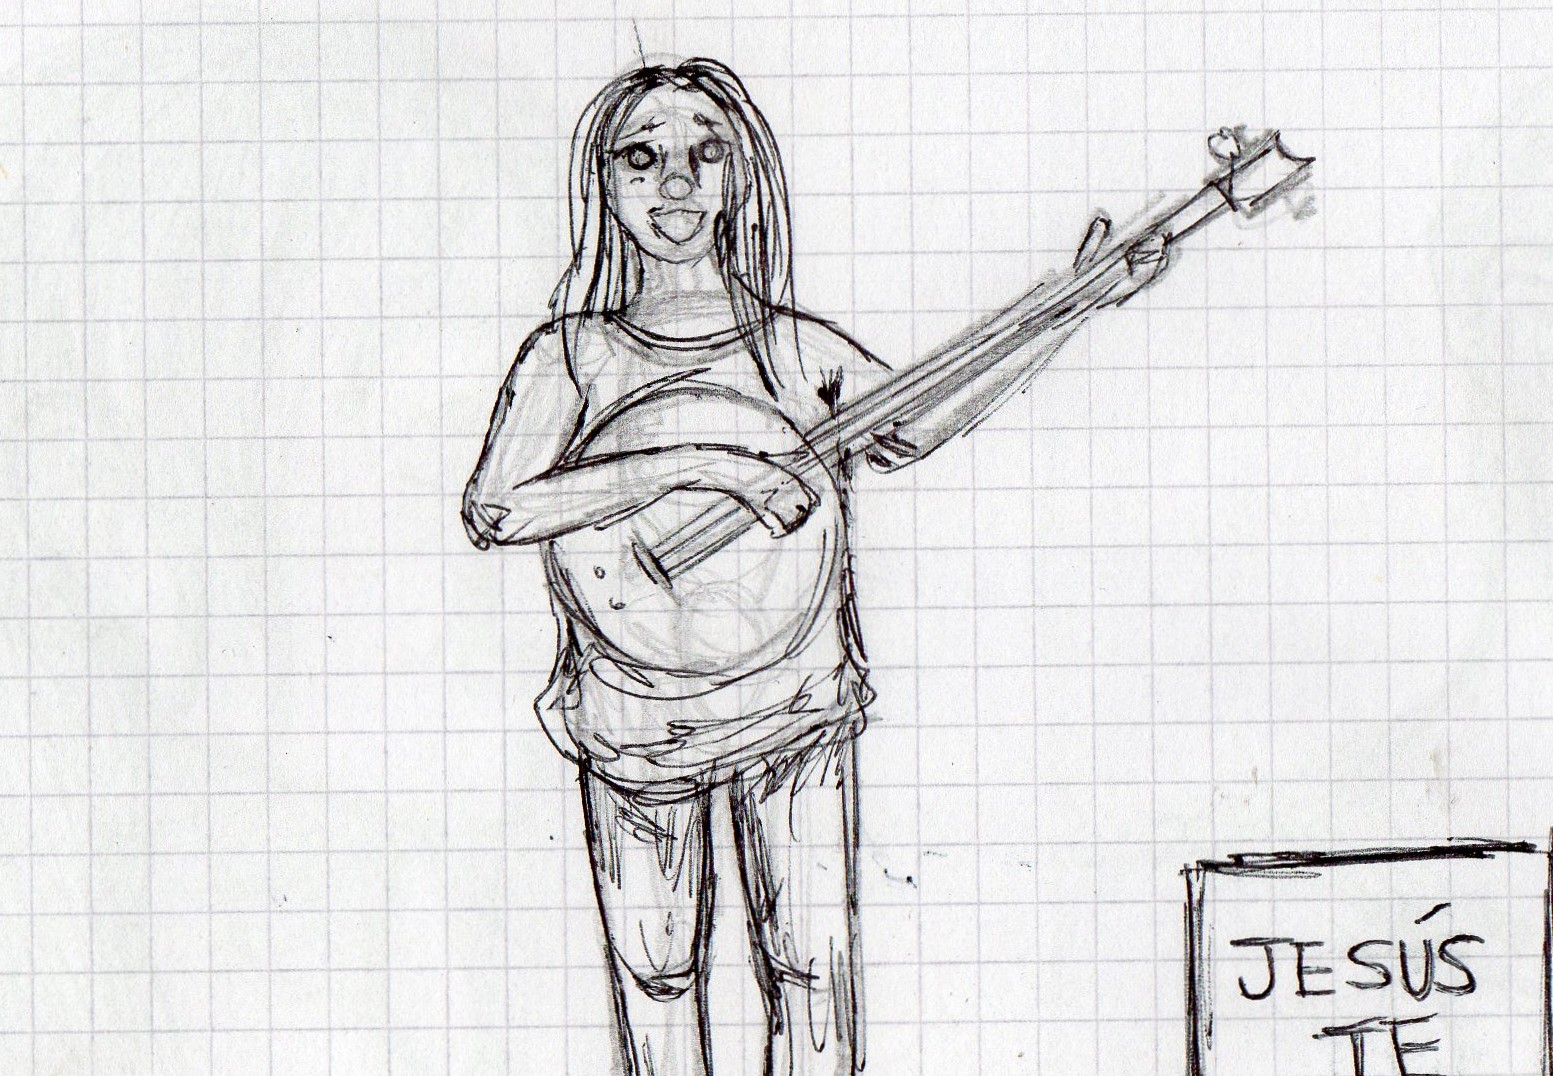 JESÚS
TE